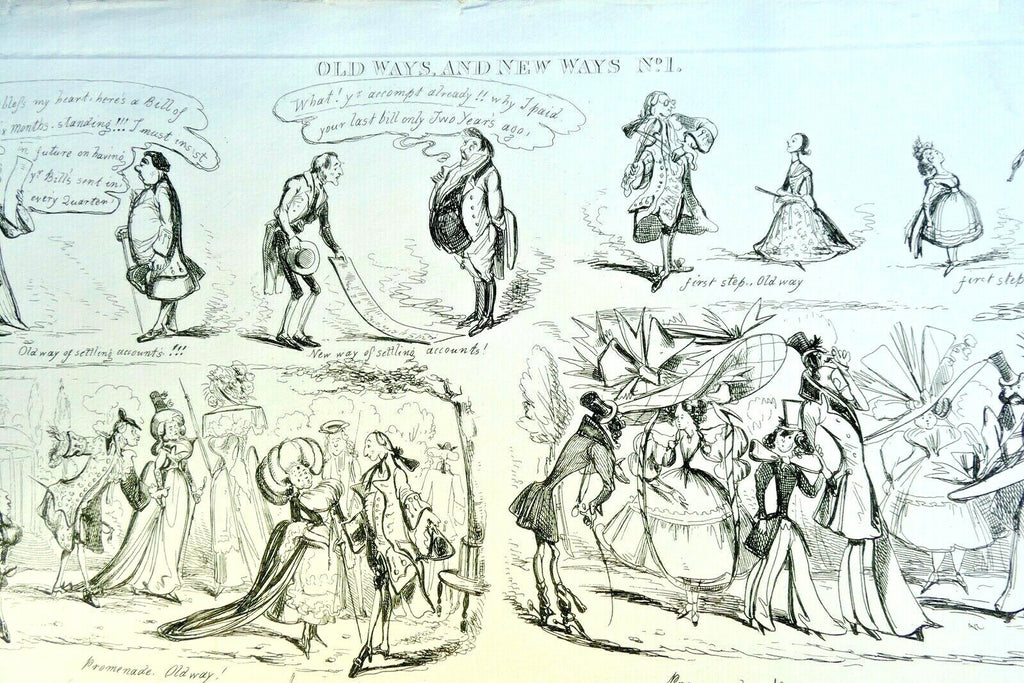 OLD WAYS, AND NEW WAYS No1.
bless my heart, here's a Bill of
months standing!!! I must insist
in future on having
yr Bills sent in,
every Quarter!
What! yr accompt already!! why I paid
your last bill only Two Year's ago,
first step, Old way
first step
Old way of settling accounts!!!
New way of settling accounts!
Promenade. Old way!